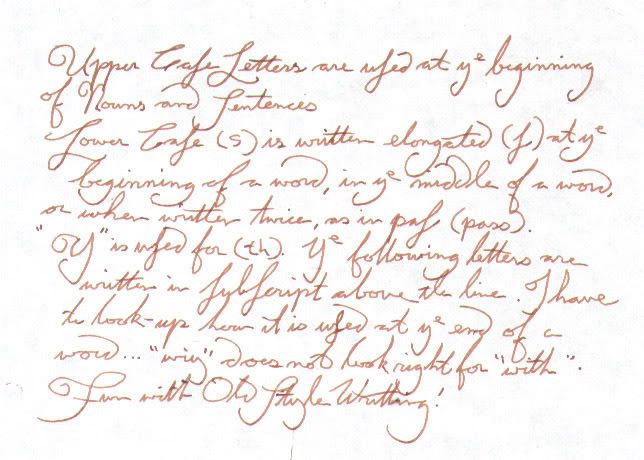 Upper Caſe Letters are uſed at yᵉ beginning
of Nouns and Sentences
Lower Caſe (s) is written elongated (ſ) at yᵉ
beginning of a word, in yᵉ middle of a word,
or when written twice, as in paſ (pass).
"Y" is uſed for (th). Yᵉ following letters are
written in SybScript above the line. I have
to look-up how it is uſed at yᵉ end of a
word... "wiy" does not look right for "with".
Fun with Old Style Writting!